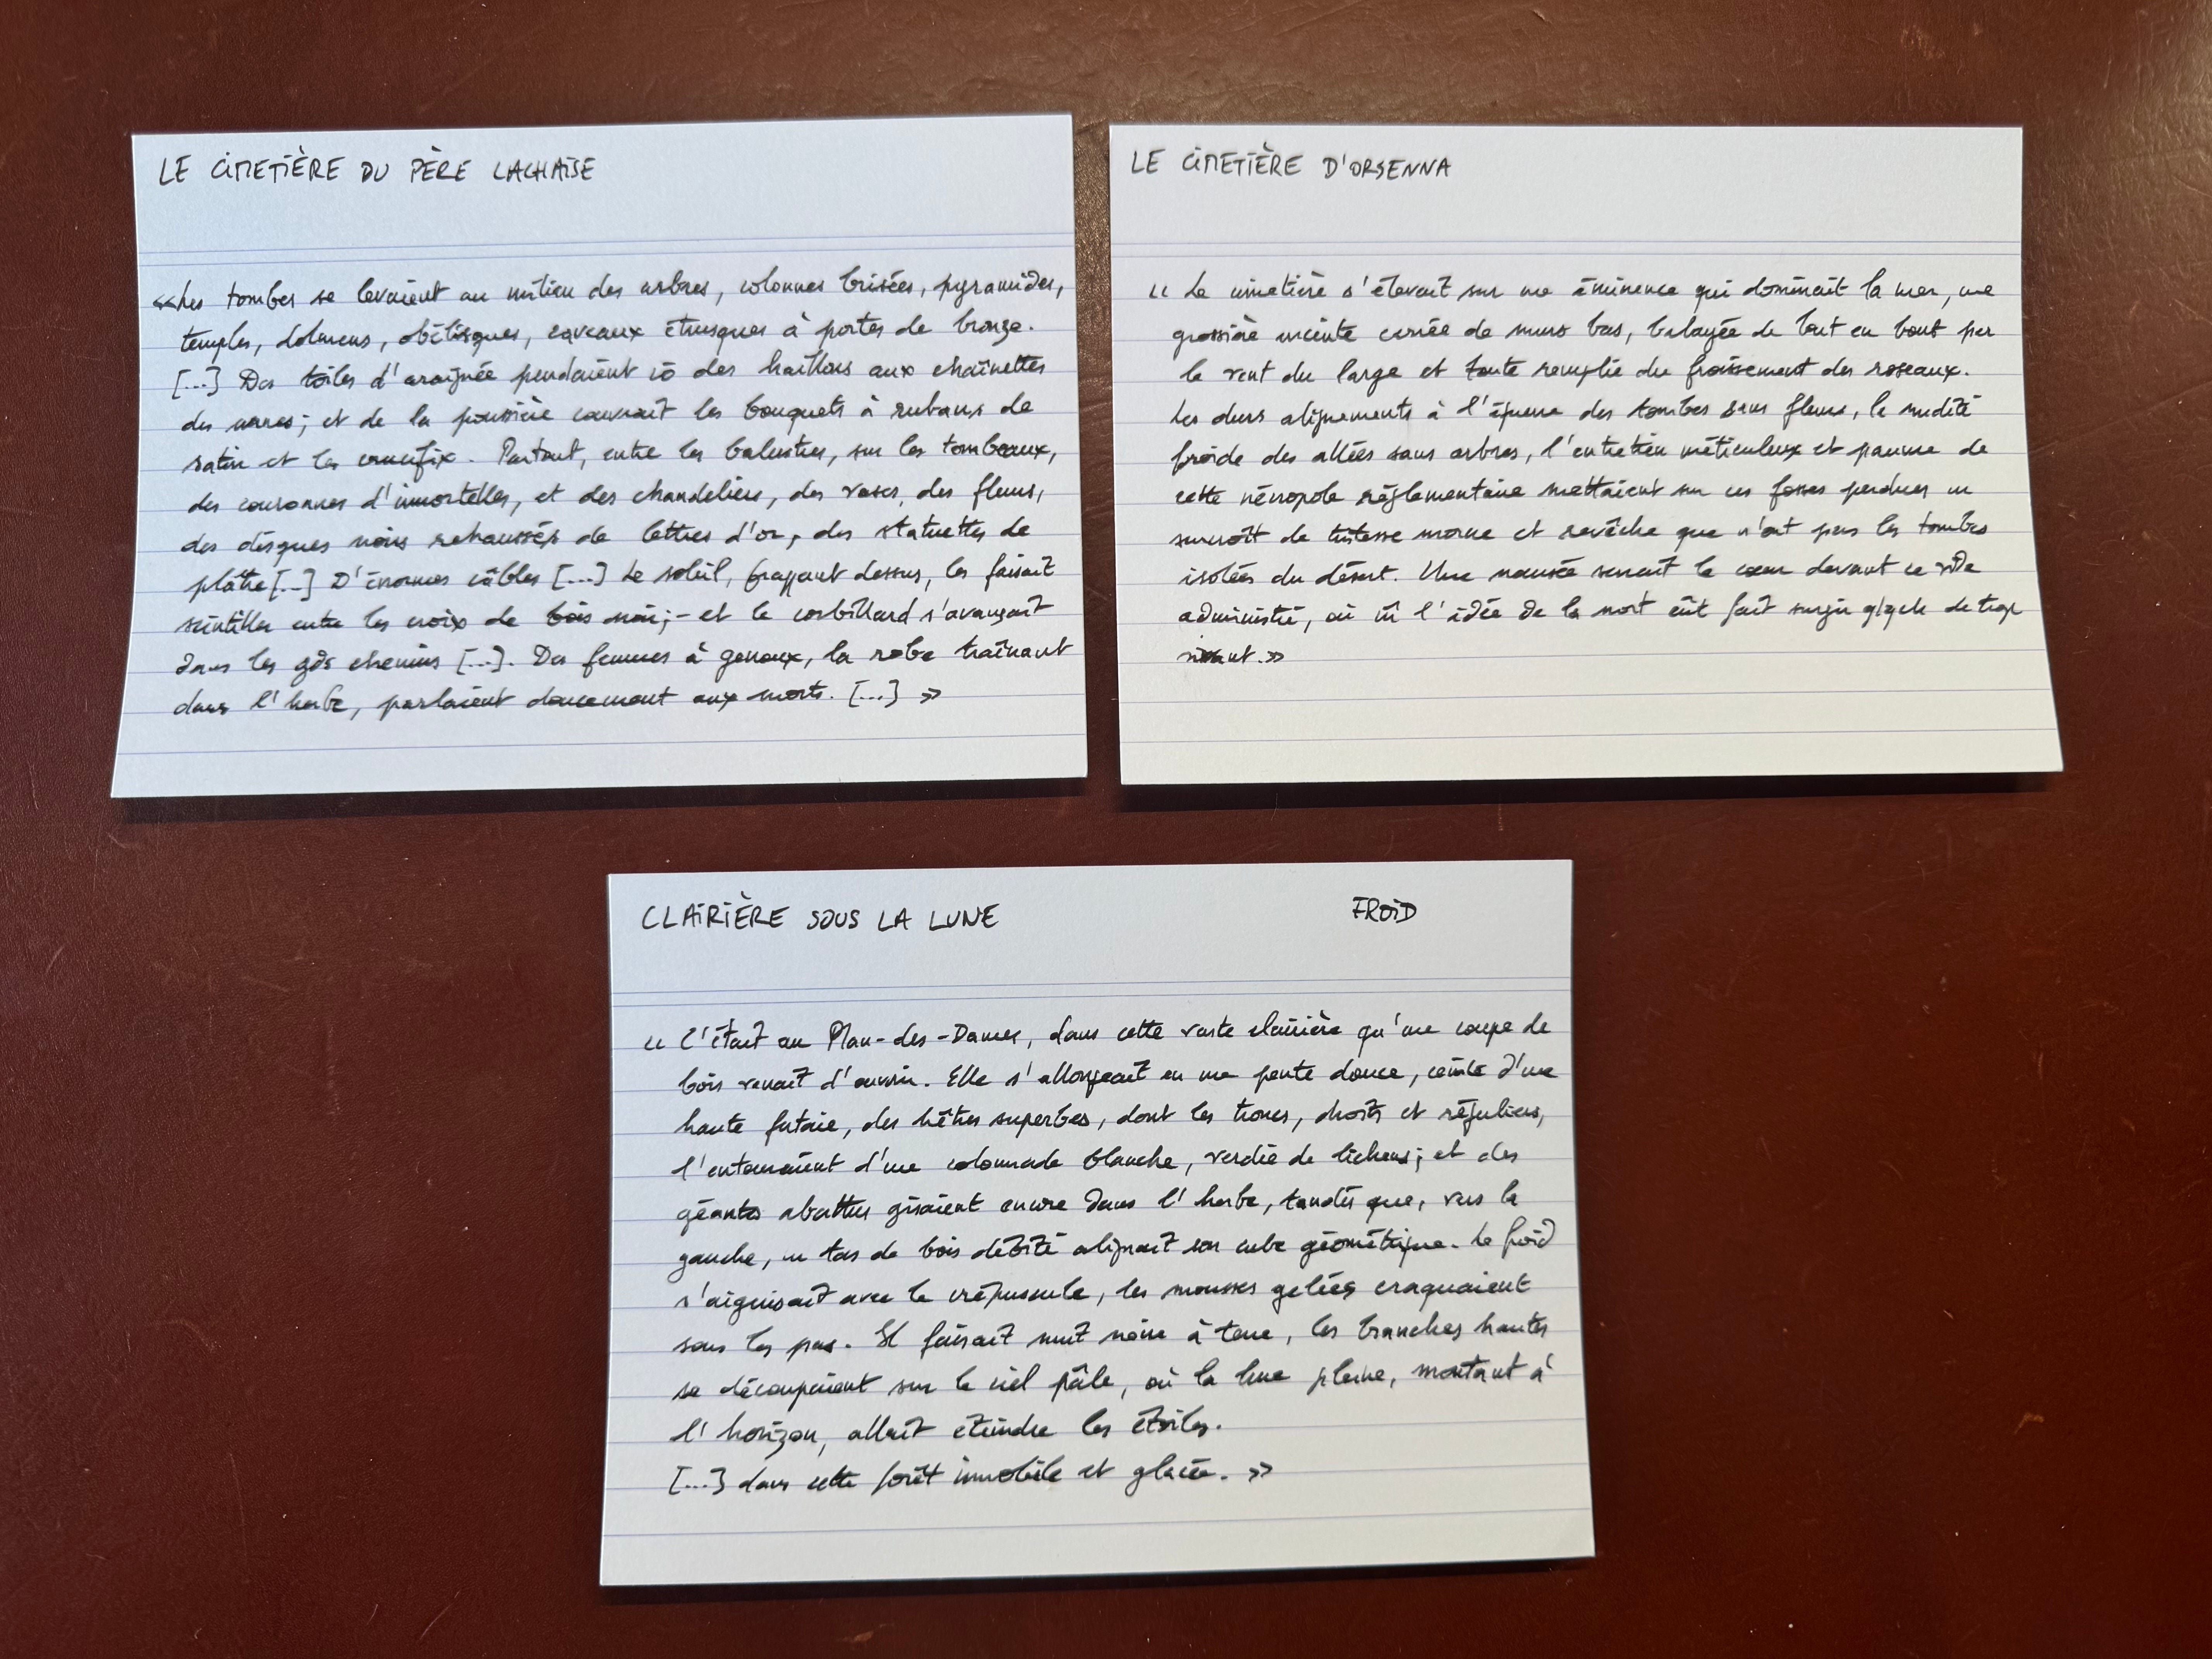 LE CIMETIÈRE DU PÈRE LACHAISE
«Les tombes se levaient au milieu des arbres, colonnes brisées, pyramides,
temples, dolmens, obélisques, caveaux étrusques à portes de bronze.
[...] Des toiles d'araignée pendaient co des haillons aux chaînettes
des urnes; et de la poussière couvrait les bouquets à rubans de
satin et les crucifix. Partout, entre les balustres, sur les tombeaux,
des couronnes d'immortelles, et des chandeliers, des vases, des fleurs,
des disques noirs rehaussés de lettres d'or, des statuettes de
plâtre [...] D'énormes câbles [...] Le soleil, frappant dessus, les faisait
scintiller entre les croix de bois noir; - et le corbillard s'avançait
dans les gds chemins [...]. Des femmes à genoux, la robe traînant
dans l'herbe, parlaient doucement aux morts. [...] »
LE CIMETIÈRE D'ORSENNA
« Le cimetière s'élevait sur une éminence qui dominait la mer, une
grossière enceinte carrée de murs bas, balayée de bout en bout par
le vent du large et toute remplie du froissement des roseaux.
Les durs alignements à l'équerre des tombes sans fleurs, la nudité
froide des allées sans arbres, l'entretien méticuleux et pauvre de
cette nécropole réglementaire mettaient sur ces fosses perdues un
surcroît de tristesse morne et revêche que n'ont pas les tombes
isolées du désert. Une nausée serrait le cœur devant ce vide
administré, où ü l'idée de la mort eût fait surgir qlqch de trop
vivant.»
CLAIRIÈRE SOUS LA LUNE FROID
« C'était au Plan-des-Dames, dans cette vaste clairière qu'une coupe de
bois venait d'ouvrir. Elle s'allongeait en une pente douce, ceinte d'une
haute futaie, des hêtres superbes, dont les troncs, droits et réguliers,
l'entouraient d'une colonnade blanche, verdie de lichens; et des
géants abattus gisaient encore dans l'herbe, tandis que, vers la
gauche, un tas de bois débité alignait son cube géométrique. Le froid
s'aiguisait avec le crépuscule, les mousses gelées craquaient
sous les pas. Il faisait nuit noire à terre, les branches hautes
se découpaient sur le ciel pâle, où la lune pleine, montant à
l'horizon, allait éteindre les étoiles.
[...] dans cette forêt immobile et glacée. »